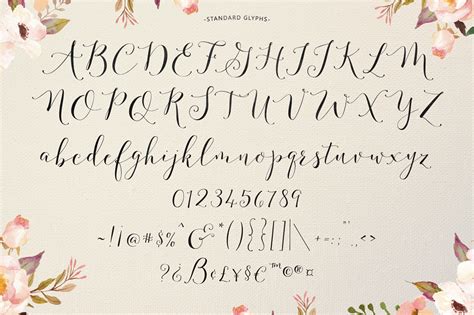 -STANDARD GLYPHS-
ABCDEFGHIJKLM
NOPQRSTUVWXYZ
abcdefghijklmnopqrstuvwxyz
0123456789
~!¡@#$%^&*(){}[]|\
÷+-=_:;"',.<>
?¿B¢£¥$€™©®¤